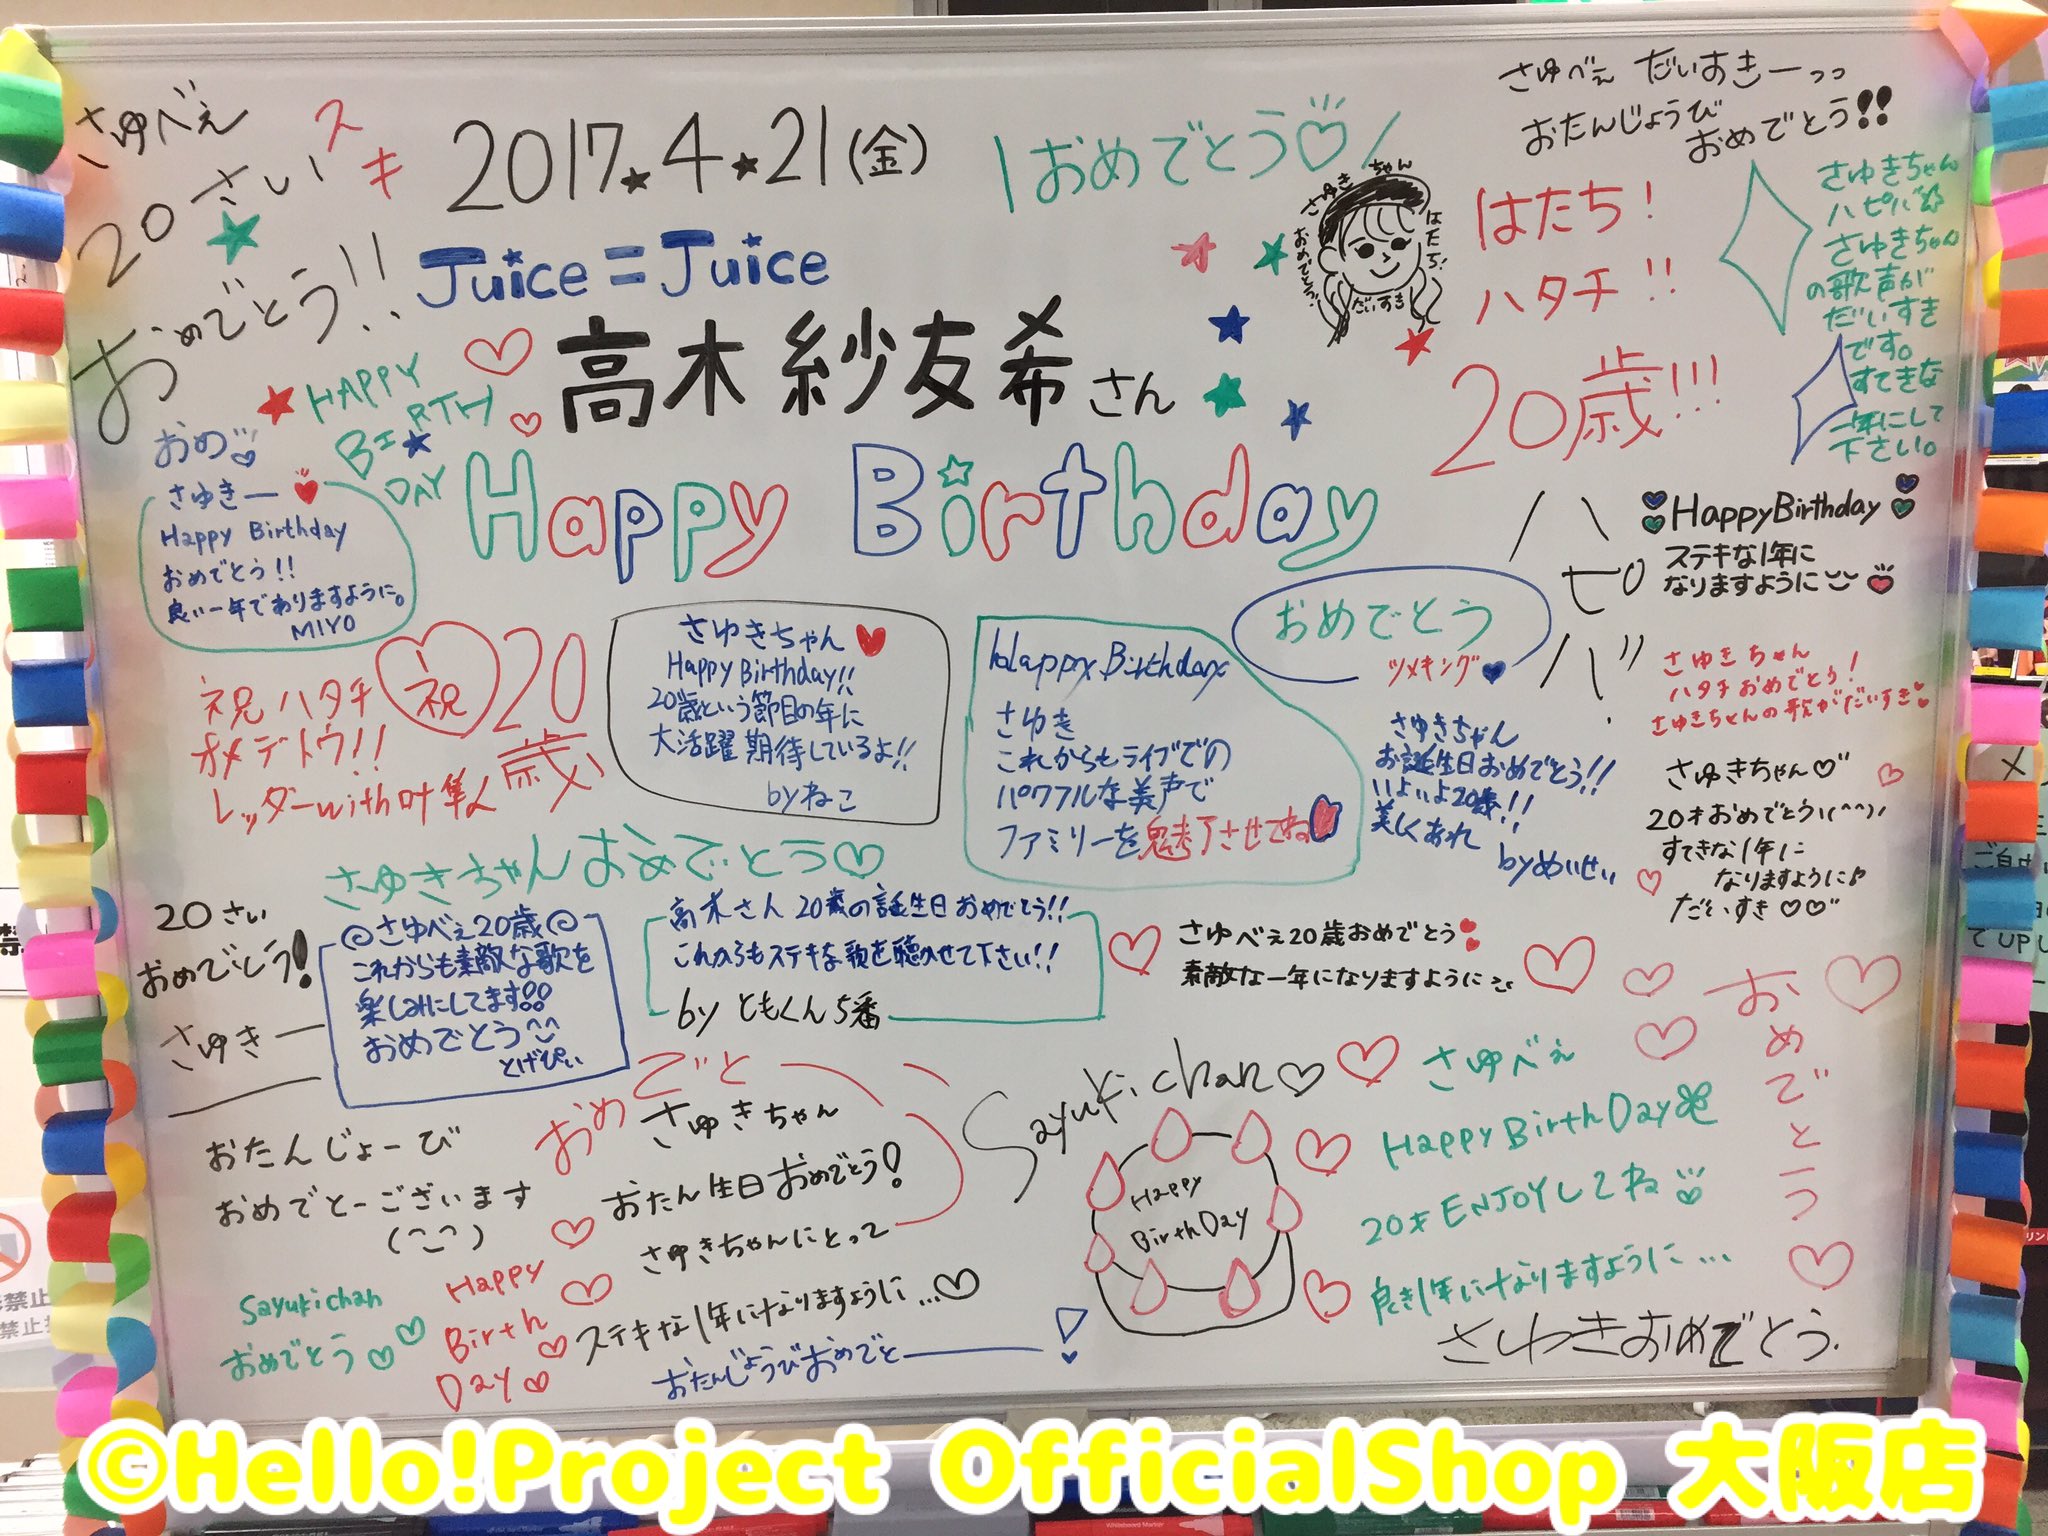 さゆべぇ
20さい
スキ
おめでとう!!
2017.4.21(金)
Juice=Juice
高木紗友希さん
Happy Birthday
\おめでとう♡/
さゆきちゃん
はたち!
おめでとう!
だいすき
さゆべぇ だいすきーっっ
おたんじょうび
おめでとう!!
はたち!
ハタチ!!
20歳!!!
さゆきちゃん
ハピバ☆
さゆきちゃん
の歌声が
だいすき
です。
すてきな
一年にして
下さい。
HAPPY
BIRTH
DAY
おめ
さゆきー♥
Happy Birthday
おめでとう!!
良い一年でありますように。
MIYO
ハピバ
♥HappyBirthday♥
ステキな1年に
なりますように
祝ハタチ
オメデトウ!!
レッダーwith叶隼人
祝
20歳
さゆきちゃん♥
Happy Birthday!!
20歳という節目の年に
大活躍期待しているよ!!
byねこ
Happy Birthday
さゆき
これからもライブでの
パワフルな美声で
ファミリーを魅了させてね
おめでとう
ツメキング♥
さゆきちゃん
お誕生日おめでとう!!
いよいよ20歳!!
美しくあれ
byめいせい
さゆきちゃん
ハタチおめでとう!
さゆきちゃんの歌がだいすき♥
さゆきちゃん♡
20才おめでとう\(^^)/
すてきな1年に
なりますように♪
だいすき♡♡
さゆきちゃんおめでとう♡
20さい
おめでとう!
さゆきー
さゆべぇ20歳
これからも素敵な歌を
楽しみにしてます!!
おめでとう^^
とげぴぃ
高木さん 20歳の誕生日おめでとう!!
これからもステキな歌を聴かせて下さい!!
by ともくん5番
さゆべぇ20歳おめでとう
素敵な一年になりますように
おめでとーう
おたんじょーび
おめでとーございます
(^-^)
おめでと
さゆきちゃん
おたん生日おめでとう!
さゆきちゃんにとって
ステキな1年になりますように...♡
Sayukichan♡
Happy
BirthDay
さゆべぇ
Happy BirthDay
20才ENJOYしてね
良き1年になりますように...
さゆきおめでとう.
Sayukichan
おめでとう♡♡
Happy
Birth
Day♡
おたんじょうびおめでとー!
©Hello!Project OfficialShop 大阪店